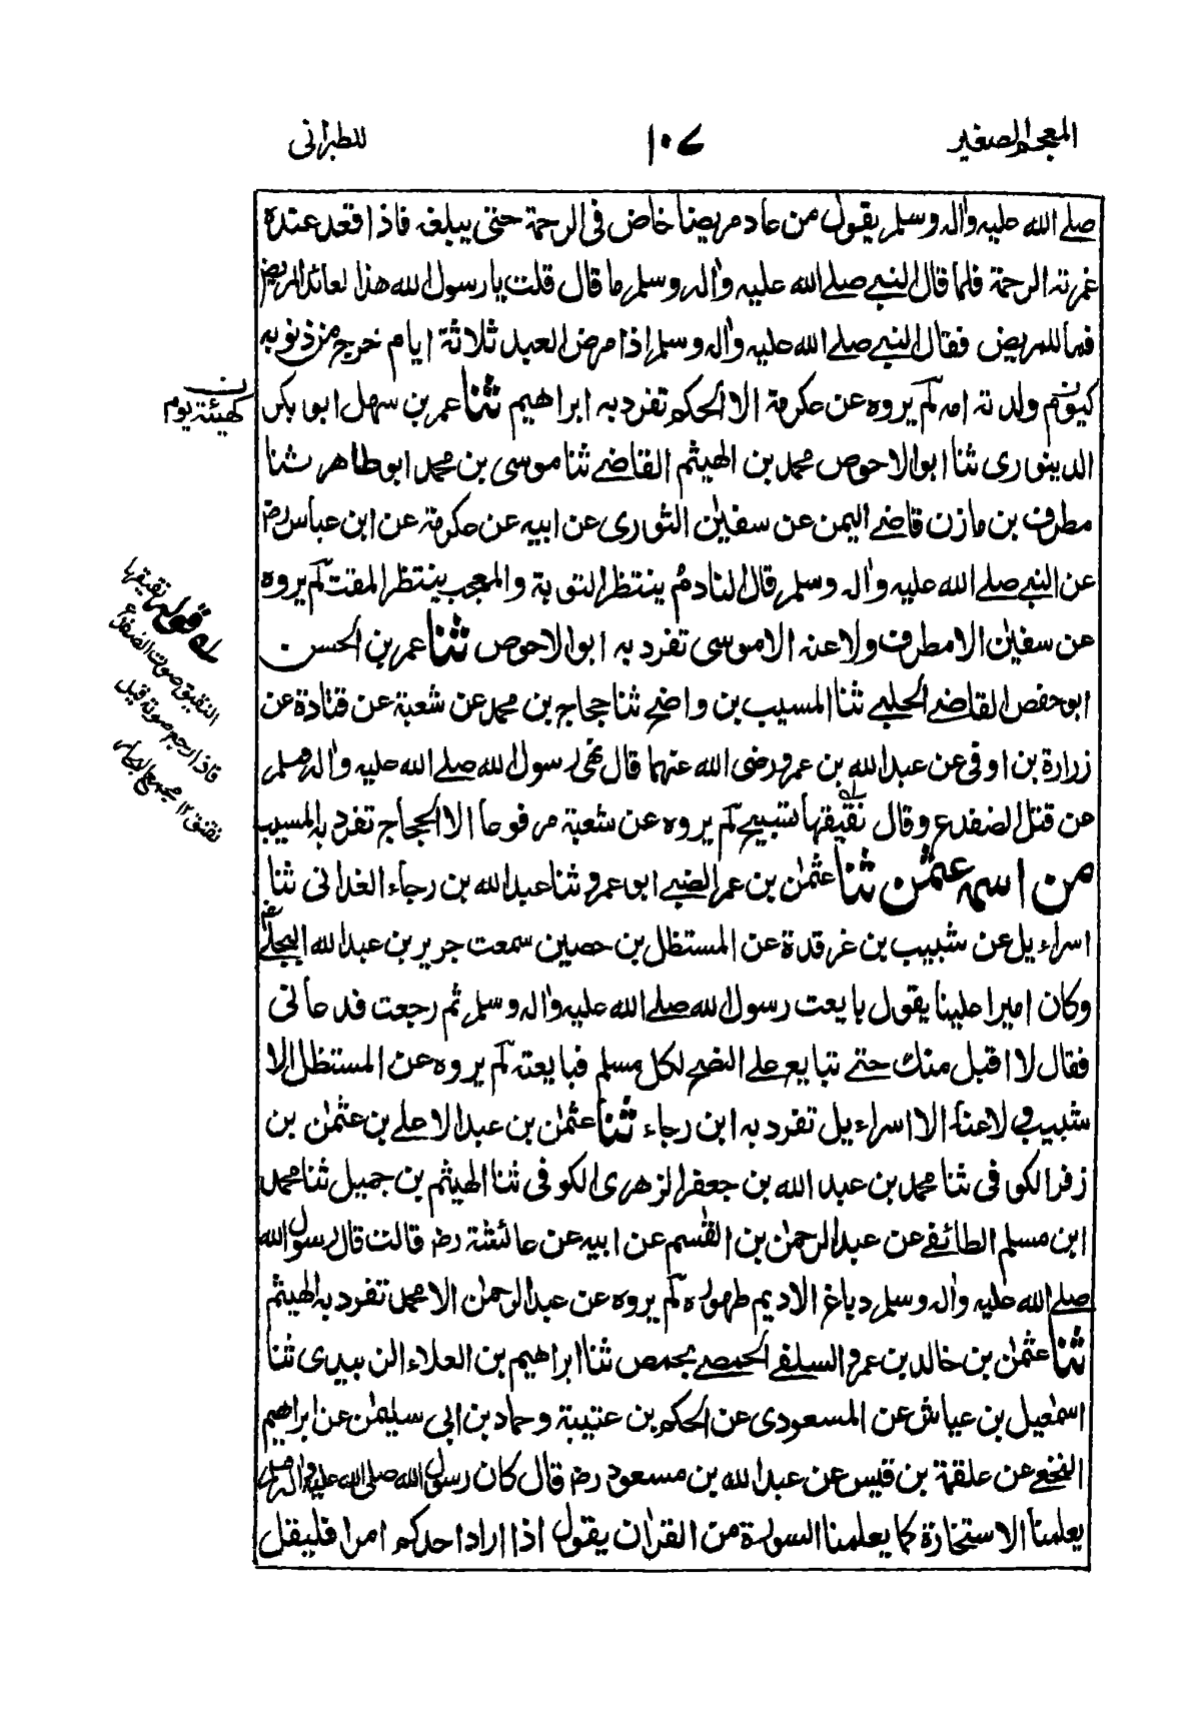 المعجم الصغير
١٠٧
للطبرانى
صلے الله عليه واٰله وسلم يقول من عاد مريضا خاض فى الرحمة حتى يبلغه فاذا قعد عنده
غمرته الرحمة فلما قال النبے صلے الله عليه واٰله وسلم ما قال قلت يا رسول الله هذا لعائد المريض
فما للمريض فقال النبے صلے الله عليه واٰله وسلم اذا مرض العبد ثلاثة ايام خرج من ذنوبه
كيوم ولدته امه لم يروه عن عكرمة الا الحكم تفرد به ابراهيم ثنا عمر بن سهل ابو بكر
ن
كهيئة يوم
الدينورى ثنا ابو الاحوص محمد بن الهيثم القاضے ثنا موسى بن محمد ابو طاهر ثنا
مطرف بن مازن قاضے اليمن عن سفيٰن الثورى عن ابيه عن عكرمة عن ابن عباس رضـ
عن النبے صلے الله عليه واٰله وسلم قال النادم ينتظر التوبة والمعجب ينتظر المقت لم يروه
عن سفيٰن الا مطرف ولا عنه الا موسى تفرد به ابو الاحوص ثنا عمر بن الحسن
ابو حفص القاضے الحلبے ثنا المسيب بن واضح ثنا حجاج بن محمد عن شعبة عن قتادة عن
زرارة بن اوفى عن عبد الله بن عمرو رضى الله عنهما قال نهى رسول الله صلے الله عليه واٰله وسلم
عن قتل الضفدع وقال نقيقها تسبيح لم يروه عن شعبة مرفوعا الا الحجاج تفرد به المسيب
له قوله نقيقها
النقيق صوت الضفدع
فاذا رجع صوته قيل
نقنق ١٢ مجمع البحار
من اسمه عثمٰن ثنا عثمٰن بن عمر الضبے ابو عمرو ثنا عبد الله بن رجاء الغدانى ثنا
اسراءيل عن شبيب بن غرقدة عن المستظل بن حصين سمعت جرير بن عبد الله البجلے
وكان اميرا علينا يقول بايعت رسول الله صلے الله عليه واٰله وسلم ثم رجعت فدعانى
فقال لا اقبل منك حتے تبايع علے النصح لكل مسلم فبايعته لم يروه عن المستظل الا
شبيب ولا عنه الا اسراءيل تفرد به ابن رجاء ثنا عثمٰن بن عبد الاعلے بن عثمٰن بن
زفر الكوفى ثنا محمد بن عبد الله بن جعفر الزهرى الكوفى ثنا الهيثم بن جميل ثنا محمد
ابن مسلم الطائفے عن عبد الرحمٰن بن القٰسم عن ابيه عن عائشة رضـ قالت قال رسول الله
صلے الله عليه واٰله وسلم دباغ الاديم طهوره لم يروه عن عبد الرحمٰن الا محمد تفرد به الهيثم
ثنا عثمٰن بن خالد بن عمرو السلفے الحمصے بحمص ثنا ابراهيم بن العلاء الزبيدى ثنا
اسمٰعيل بن عياش عن المسعودى عن الحكم بن عتيبة وحماد بن ابى سليمٰن عن ابراهيم
النخعے عن علقمة بن قيس عن عبد الله بن مسعود رضـ قال كان رسول الله صلى الله عليه واٰله وسلم
يعلمنا الاستخارة كما يعلمنا السورة من القراٰن يقول اذا اراد احدكم امرا فليقل